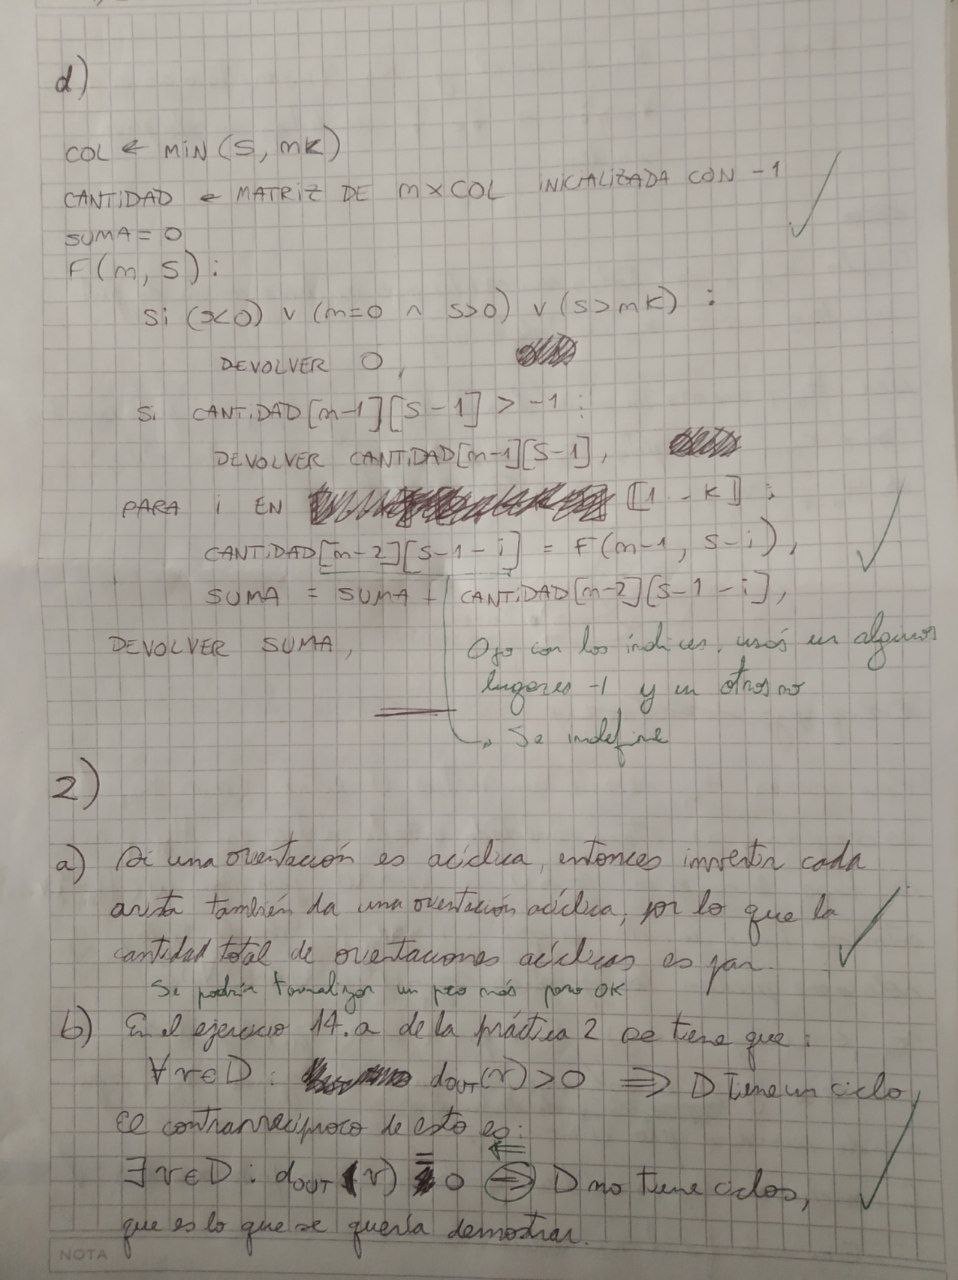 d)
COL ← MIN(S, mK)
CANTIDAD ← MATRIZ DE m×COL INICIALIZADA CON -1
SUMA = 0
F(m, S):
Si (s<0) ∨ (m=0 ∧ s>0) ∨ (s>mK):
DEVOLVER 0,
Si CANTIDAD[m-1][S-1] > -1:
DEVOLVER CANTIDAD[m-1][S-1],
PARA i EN [1..K]:
CANTIDAD[m-2][S-1-i] = F(m-1, S-i),
SUMA = SUMA + CANTIDAD[m-2][S-1-i],
DEVOLVER SUMA,
Ojo con los índices, usás en algunos
lugares -1 y en otros no
→ Se indefine
2)
a) Si una orientación es acíclica, entonces invertir cada
arista también da una orientación acíclica, por lo que la
cantidad total de orientaciones acíclicas es par.
Se podría formalizar un poco más pero OK
b) En el ejercicio 14.a de la práctica 2 se tiene que:
∀v∈D: dOUT(v)>0 ⟹ D tiene un ciclo,
el contrarrecíproco de esto es:
⟸
∃v∈D: dOUT(v) = 0 ⟹ D no tiene ciclos,
que es lo que se quería demostrar.
NOTA